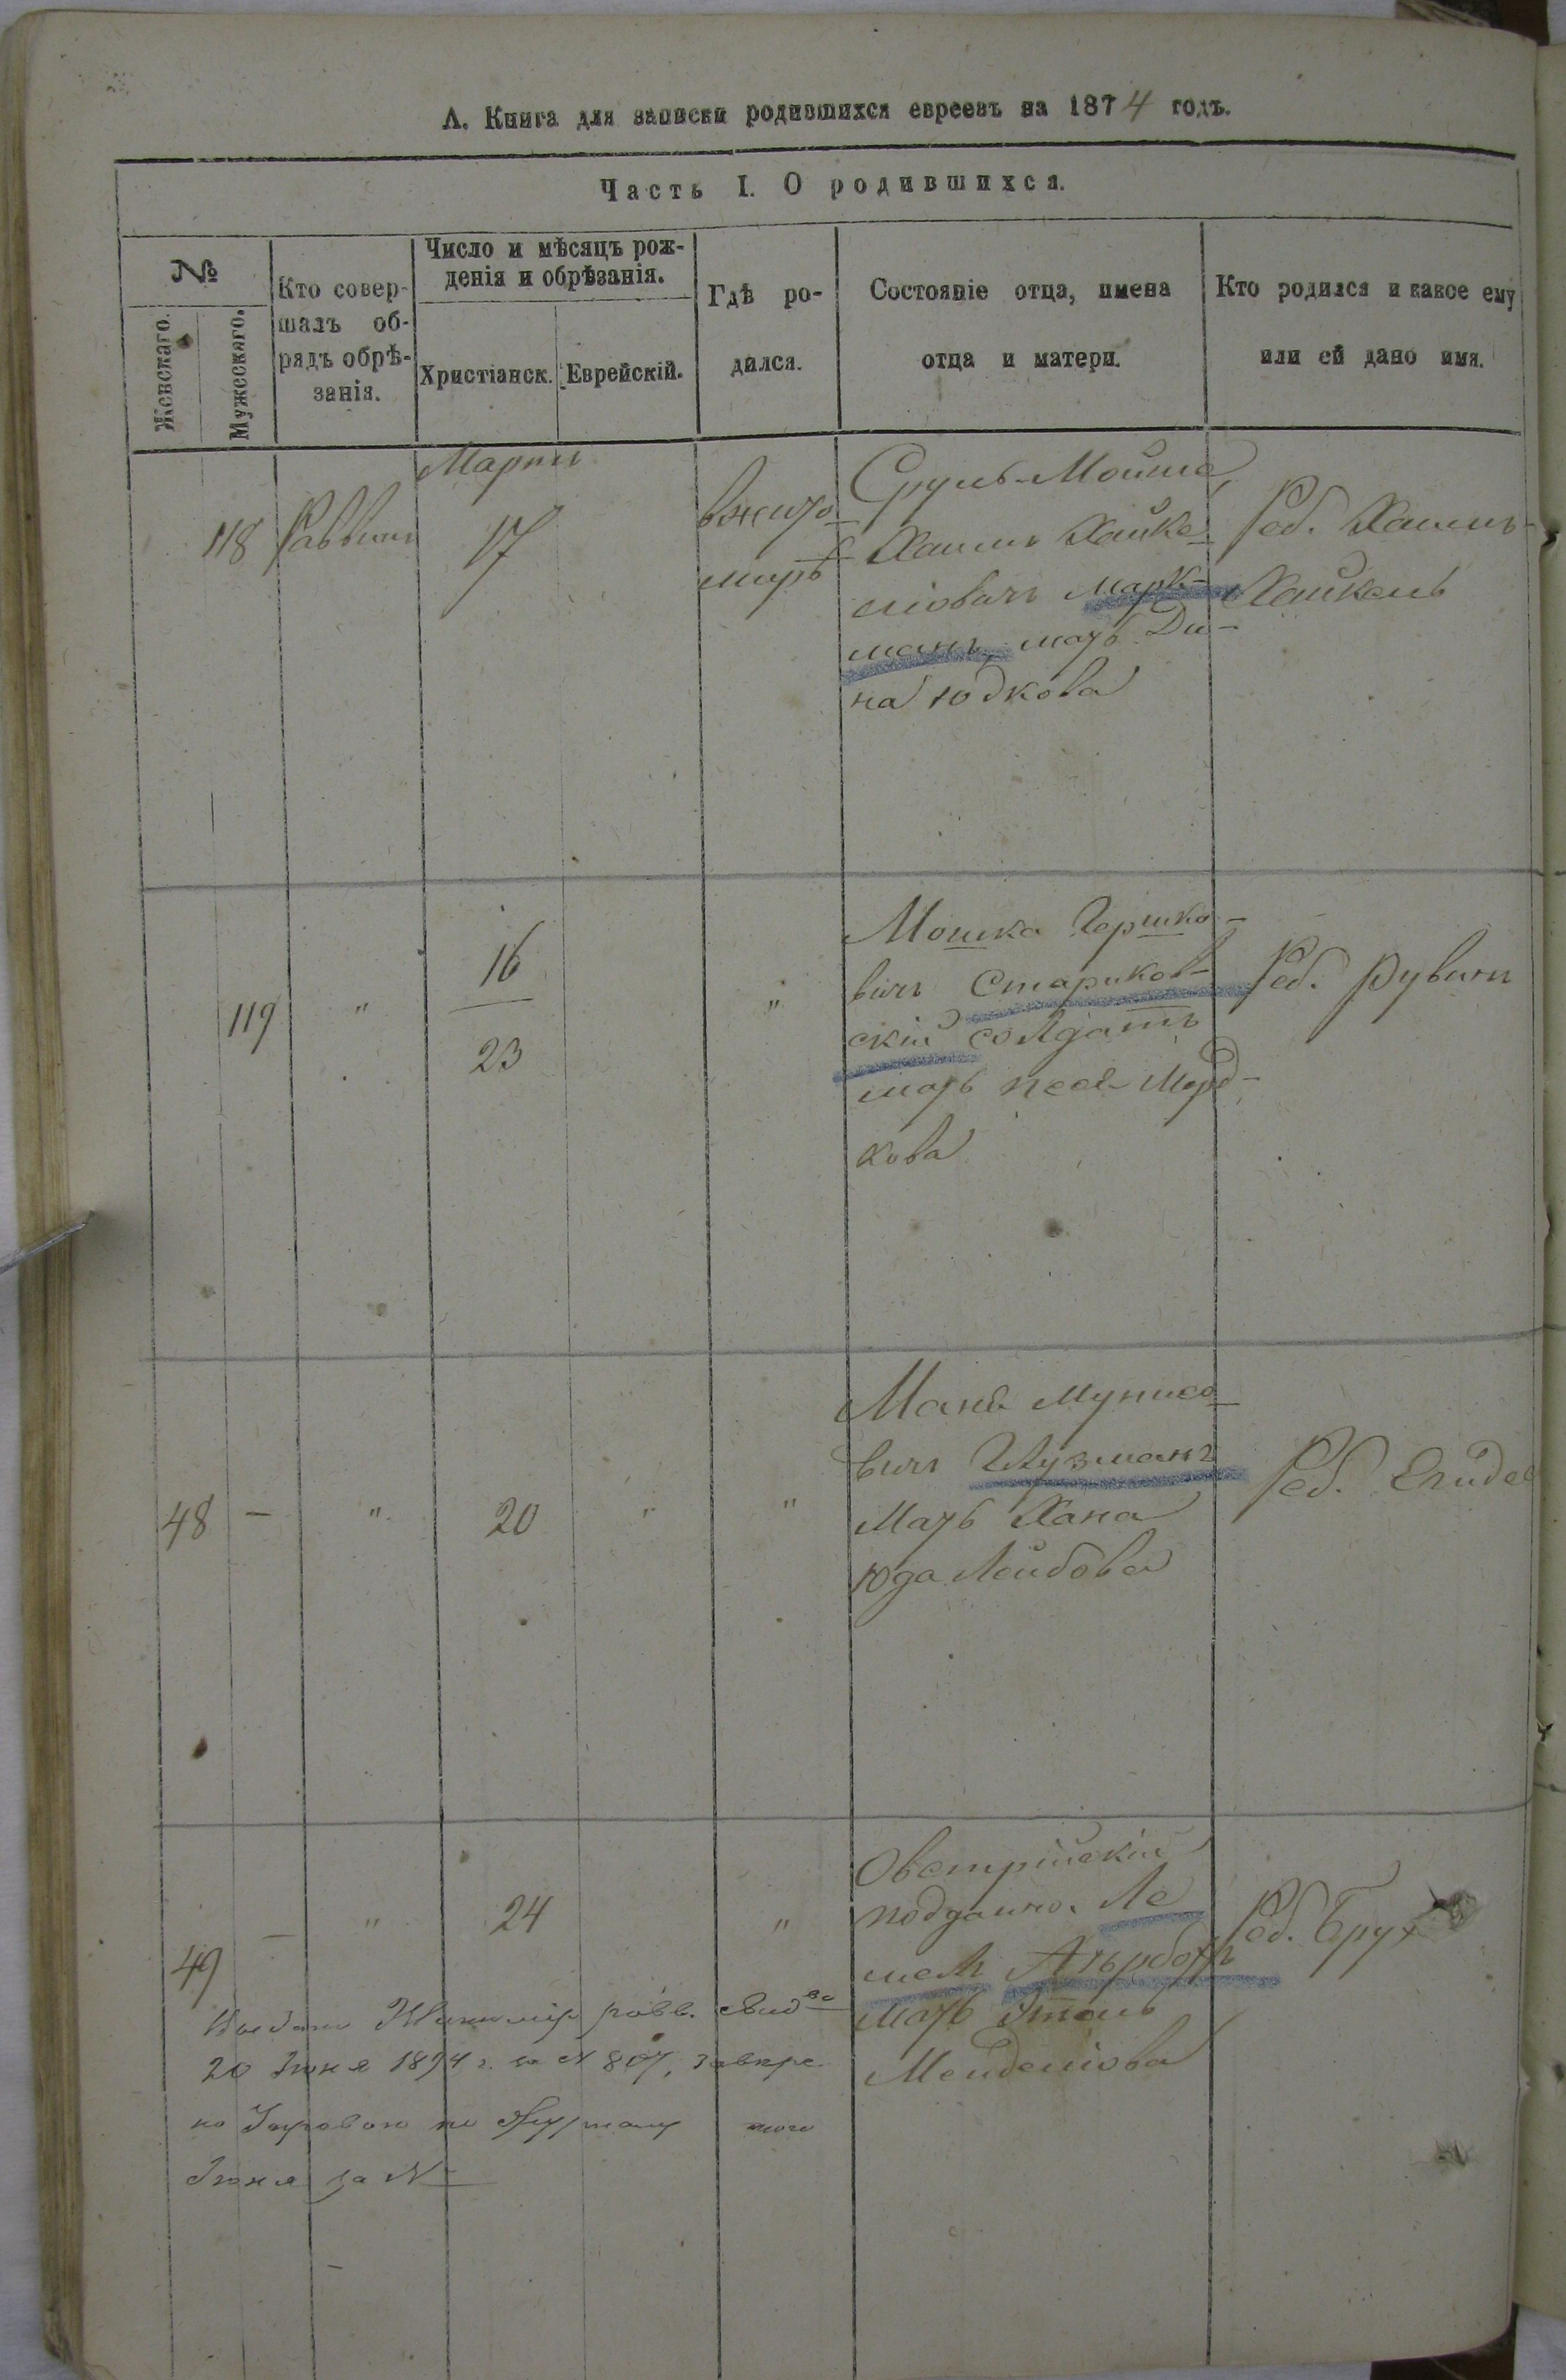 А. Книга для записки родившихся евреевъ на 1874 годъ.
Часть I. О родившихся.
№
Женскаго.
Мужескаго.
Кто совер-
шалъ об-
рядъ обрѣ-
занія.
Число и мѣсяцъ рож-
денія и обрѣзанія.
Христіанск.
Еврейскій.
Гдѣ ро-
дился.
Состояніе отца, имена
отца и матери.
Кто родился и какое ему
или ей дано имя.
118
Раввинъ
Марта
17
в Жито-
мирѣ
Сруль-Мошко
Хаимъ Хайке-
ліовичъ Марк-
манъ, мать Ди-
на Юдкова
Реб. Хаимъ-
Хайкель
119
"
16
23
"
Мошка Гершко-
вичъ Стариков-
скій солдатъ
мать Песя Морд-
кова
Реб. Рувинъ
48
—
"
20
"
"
Мань
вичъ Глузманъ
Мать Хана
Юда Лейбова
Реб.
49
—
"
24
"
Овстрійскій
поддано. Ле
мель
мать Этель
Менделіова
Реб. Брух
раBB. Свидво
20 Іюня 1894 г. за № 807,
по того
Іюня за №